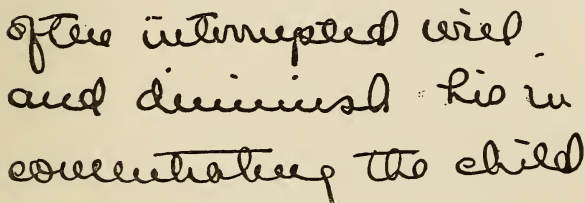 often interrupted will
and diminish his in
concentrating the child